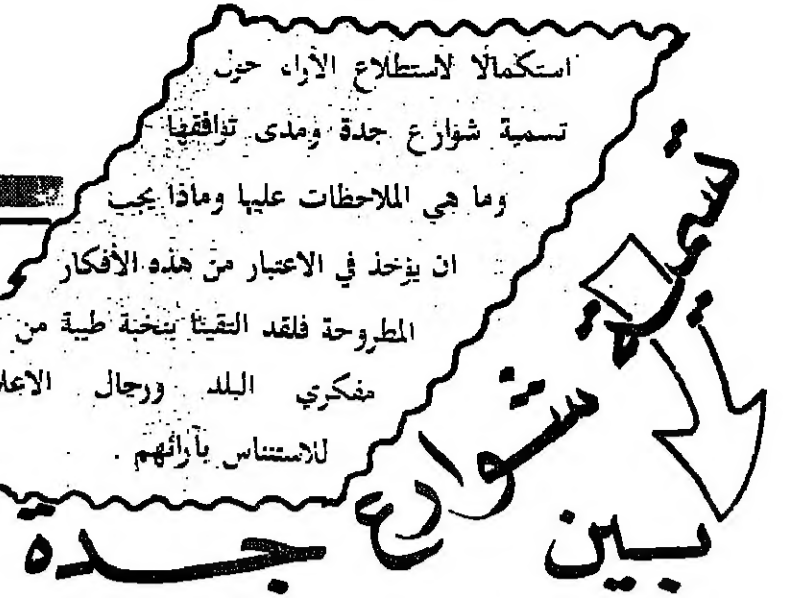 استكمالًا لاستطلاع الأراء حول
تسمية شوارع جدة ومدى توافقها
وما هي الملاحظات عليها وماذا يجب
ان يؤخذ في الاعتبار من هذه الأفكار
المطروحة فلقد التقينا بنخبة طيبة من
مفكري البلد ورجال
للاستئناس بآرائهم .
تسمية شوارع جدة
بين